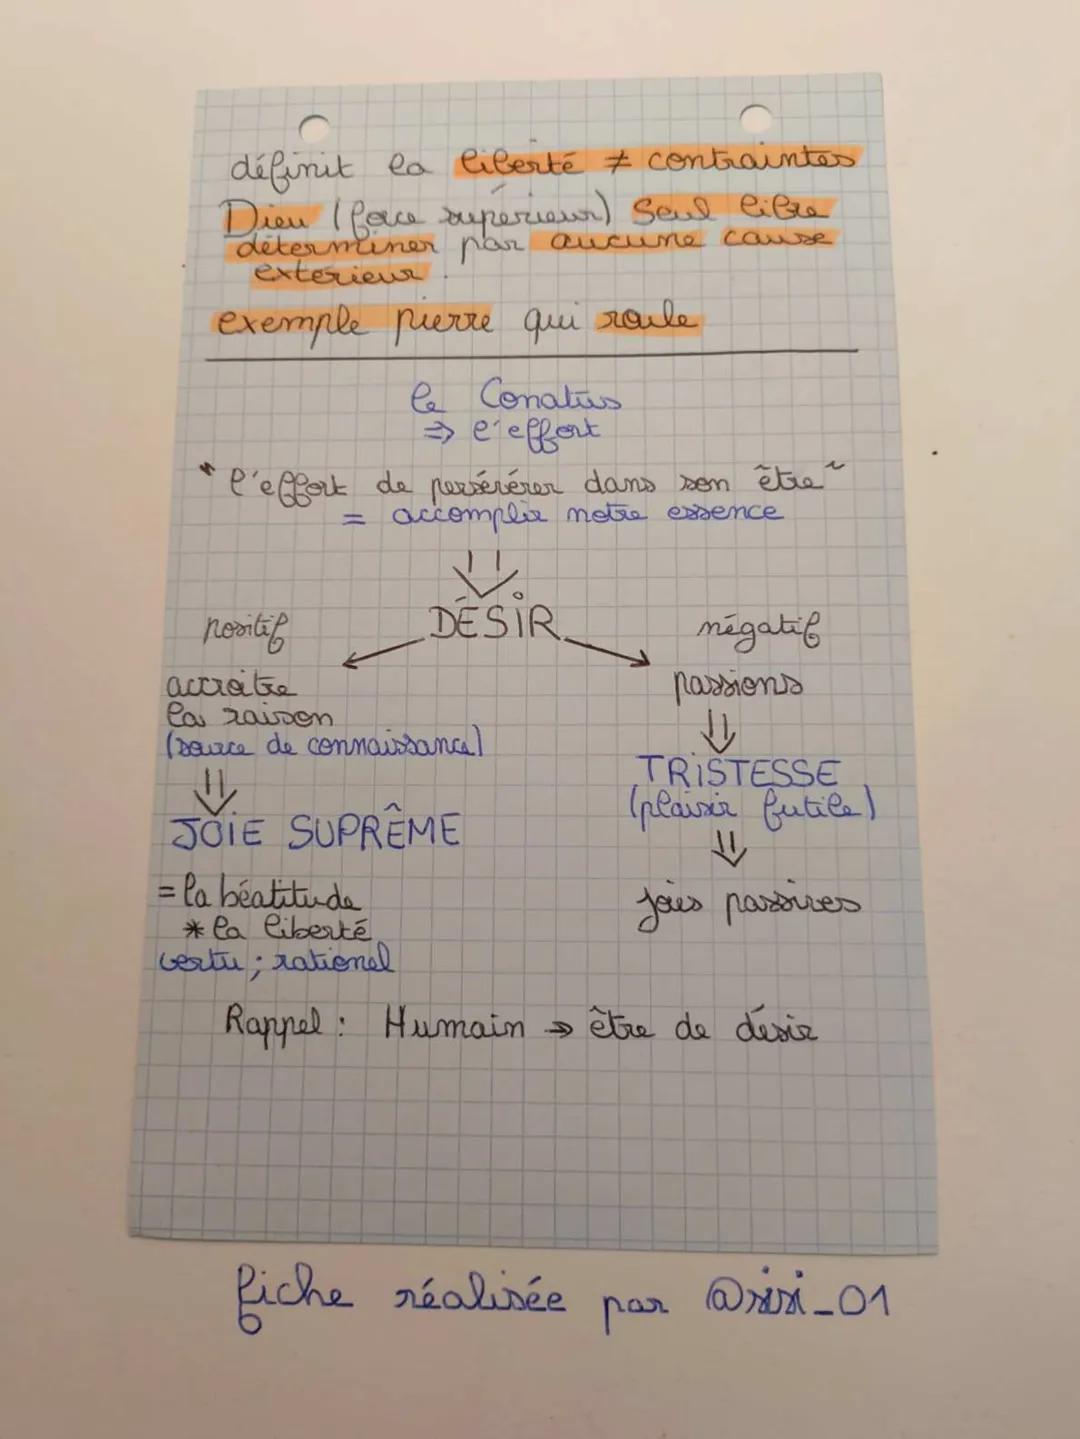 définit la liberté ≠ contraintes
Dieu (force supérieur) Seul libre
déterminer par aucune cause
extérieur.
exemple pierre qui roule
le Conatus
⇒ l'effort
"l'effort de persévérer dans son être"
= accomplir notre essence
DÉSIR
positif
négatif
accroitre
la raison
(source de connaissance)
JOIE SUPRÊME
= la béatitude
* la liberté
vertu ; rationel
passions
TRISTESSE
(plaisir futile)
joies passives
Rappel : Humain → être de désir
fiche réalisée par @sisi_01